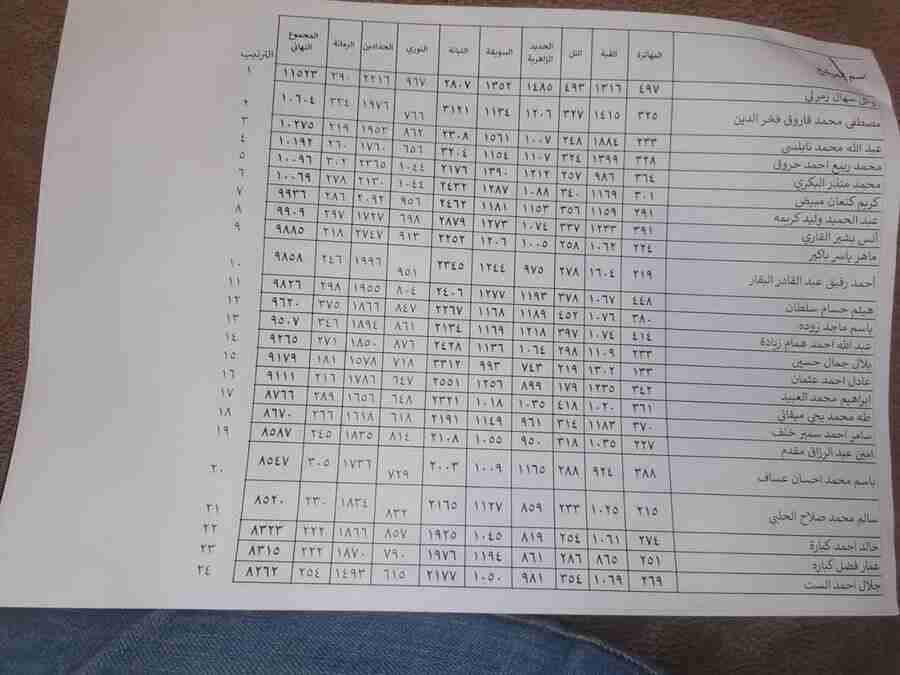 اسم المرشح المهاترة القبة التل الحديد الزاهرية السويقة التبانة النوري الحدادين الرمانة المجموع النهائي الترتيب
سهال زمرلي ٤٩٧ ١٣١٦ ٤٩٣ ١٤٨٥ ١٣٥٢ ٢٨٠٧ ٩٦٧ ٢٢١٦ ٣٩٠ ١١٥٢٣ ١
مصطفى محمد فاروق فخر الدين ٣٢٥ ١٤١٥ ٣٢٧ ١٢٠٦ ١١٣٤ ٣١٢١ ٧٦٦ ١٩٧٦ ٣٣٤ ١٠٦٠٤ ٢
عبد الله محمد نابلسي ٢٣٣ ١٨٨٤ ٢٤٨ ١٠٠٧ ١٥٦١ ٢٣٠٨ ٨٦٢ ١٩٥٣ ٢١٩ ١٠٢٧٥ ٣
محمد ربيع احمد حروق ٣٢٨ ١٣٩٩ ٣٢٤ ١١٠٧ ١١٥٤ ٣٢٠٤ ٦٥٦ ١٧٦٠ ٢٦٠ ١٠١٩٢ ٤
محمد منذر البكري ٣٦٤ ٩٨٦ ٢٥٧ ١٢١٢ ١٣٩٠ ٢١٧٦ ١٠٤٤ ٢٣٦٥ ٣٠٢ ١٠٠٩٦ ٥
كريم كنعان مبيض ٣٠١ ١١٦٩ ٣٤٠ ١٠٨٨ ١٢٨٧ ٢٤٣٢ ١٠٤٤ ٢١٣٠ ٢٧٨ ١٠٠٦٩ ٦
عبد الحميد وليد كريمه ٢٩١ ١١٥٩ ٣٥٦ ١١٥٣ ١١٨١ ٢٤٦٢ ٩٥٦ ٢٠٩٢ ٢٨٦ ٩٩٣٦ ٧
أنس بشير القاري ٣٩١ ١٢٣٣ ٣٣٧ ١٠٧٤ ١٢٧٣ ٢٨٧٩ ٦٩٨ ١٧٢٧ ٢٩٧ ٩٩٠٩ ٨
ماهر ياسر باكير ٢٢٤ ١٠٦٢ ٢٥٨ ١٠٠٥ ١٢٠٦ ٢٢٥٢ ٩١٣ ٢٧٤٧ ٢١٨ ٩٨٨٥ ٩
احمد رفيق عبد القادر البقار ٢١٩ ١٦٠٤ ٢٧٨ ٩٧٥ ١٢٤٤ ٢٣٤٥ ٩٥١ ١٩٩٦ ٢٤٦ ٩٨٥٨ ١٠
هيثم حسام سلطان ٤٤٨ ١٠٦٧ ٣٧٨ ١١٩٣ ١٢٧٧ ٢٤٠٦ ٨٠٤ ١٩٥٥ ٢٩٨ ٩٨٢٦ ١١
باسم ماجد زوده ٣٨٠ ١٠٧٦ ٤٥٢ ١١٨٩ ١١٦٨ ٢٢٦٧ ٨٤٧ ١٨٦٦ ٣٧٥ ٩٦٢٠ ١٢
عبد الله احمد همام زيادة ٤١٤ ١٠٧٤ ٣٩٧ ١٢١٨ ١١٦٩ ٢١٣٤ ٨٦١ ١٨٩٤ ٣٤٦ ٩٥٠٧ ١٣
بلال جمال حسين ٢٣٣ ١١٠٩ ٢٩٨ ١٠٦٤ ١١٣٦ ٢٤٢٨ ٨٧٦ ١٨٥٠ ٢٧١ ٩٢٦٥ ١٤
عادل احمد عثمان ١٣٣ ١٣٠٢ ٢١٩ ٧٤٣ ٩٩٣ ٣٣١٢ ٧١٨ ١٥٧٨ ١٨١ ٩١٧٩ ١٥
ابراهيم محمد العبيد ٣٤٢ ١٢٣٥ ١٧٩ ٨٩٩ ١٢٥٦ ٢٥٥١ ٦٤٧ ١٧٨٦ ٢١٦ ٩١١١ ١٦
طه محمد يحي ميقاتي ٣٦١ ١٠٢٠ ٤١٨ ١٠٣٥ ١٠١٨ ٢٣٢١ ٦٤٨ ١٦٥٦ ٢٨٩ ٨٧٦٦ ١٧
سامر احمد سمير خلف ٣٧٠ ١١٨٣ ٣١٤ ٩٦١ ١١٤٩ ٢١٩١ ٦١٨ ١٦١٨ ٢٦٦ ٨٦٧٠ ١٨
امين عبد الرزاق مقدم ٢٢٧ ١٠٣٥ ٣١٨ ٩٥٠ ١٠٥٥ ٢١٠٨ ٨١٤ ١٨٣٥ ٢٤٥ ٨٥٨٧ ١٩
باسم محمد احسان عساف ٣٨٨ ٩٢٤ ٢٨٨ ١١٦٥ ١٠٠٩ ٢٠٠٣ ٧٢٩ ١٧٣٦ ٣٠٥ ٨٥٤٧ ٢٠
سالم محمد صلاح الحلبي ٢١٥ ١٠٢٥ ٢٣٣ ٨٥٩ ١١٢٧ ٢١٦٥ ٨٣٢ ١٨٣٤ ٢٣٠ ٨٥٢٠ ٢١
خالد احمد كبارة ٢٧٤ ١٠٦١ ٢٥٤ ٨١٩ ١٠٤٥ ١٩٢٥ ٨٥٧ ١٨٦٦ ٢٢٢ ٨٣٢٣ ٢٢
عمار فضل كباره ٢٥١ ٨٦٥ ٢٨٦ ٨٦١ ١١٩٤ ١٩٧٦ ٧٩٠ ١٨٧٠ ٢٢٢ ٨٣١٥ ٢٣
جلال احمد الست ٢٦٩ ١٠٦٩ ٣٥٤ ٩٨١ ١٠٥٠ ٢١٧٧ ٦١٥ ١٤٩٣ ٢٥٤ ٨٢٦٢ ٢٤